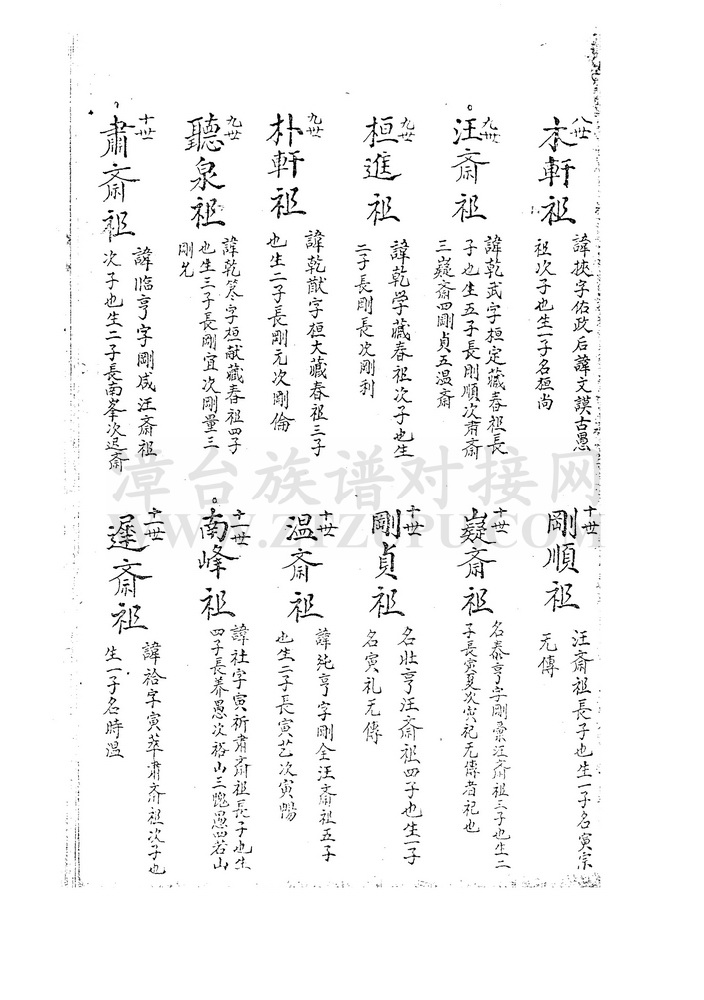 八世
木軒祖
諱挾字佑政后諱文謨古愚
祖次子也生一子名桓尚
九世
汪斎祖
諱乾武字桓定藏春祖長
子也生五子長剛順次肅斎
三嶷斎四剛貞五温斎
九世
桓進祖
諱乾学藏春祖次子也生
二子長剛長次剛利
九世
朴軒祖
諱乾猷字桓大藏春祖三子
也生二子長剛元次剛倫
九世
聽泉祖
諱乾字桓献藏春祖四子
也生三子長剛宜次剛量三
剛允
十世
肅斎祖
諱临亨字剛咸汪斎祖
次子也生二子長南峯次迟斎
十世
剛順祖
汪斎祖長子也生一子名寅宗
无傳
十世
嶷斎祖
名泰亨字剛彙汪斎祖三子也生二
子長寅夏次寅祀无傳者祀也
十世
剛貞祖
名壯亨汪斎祖四子也生一子
名寅礼无傳
十世
温斎祖
諱純亨字剛全汪斎祖五子
也生二子長寅艺次寅暢
十一世
南峰祖
諱社字寅祈肅斎祖長子也生
四子長养愚次裕山三愧愚四若山
十一世
遲斎祖
諱袷字寅萃肅斎祖次子也
生一子名時温
漳台族谱对接网
WWW.ZTZUPU.COM